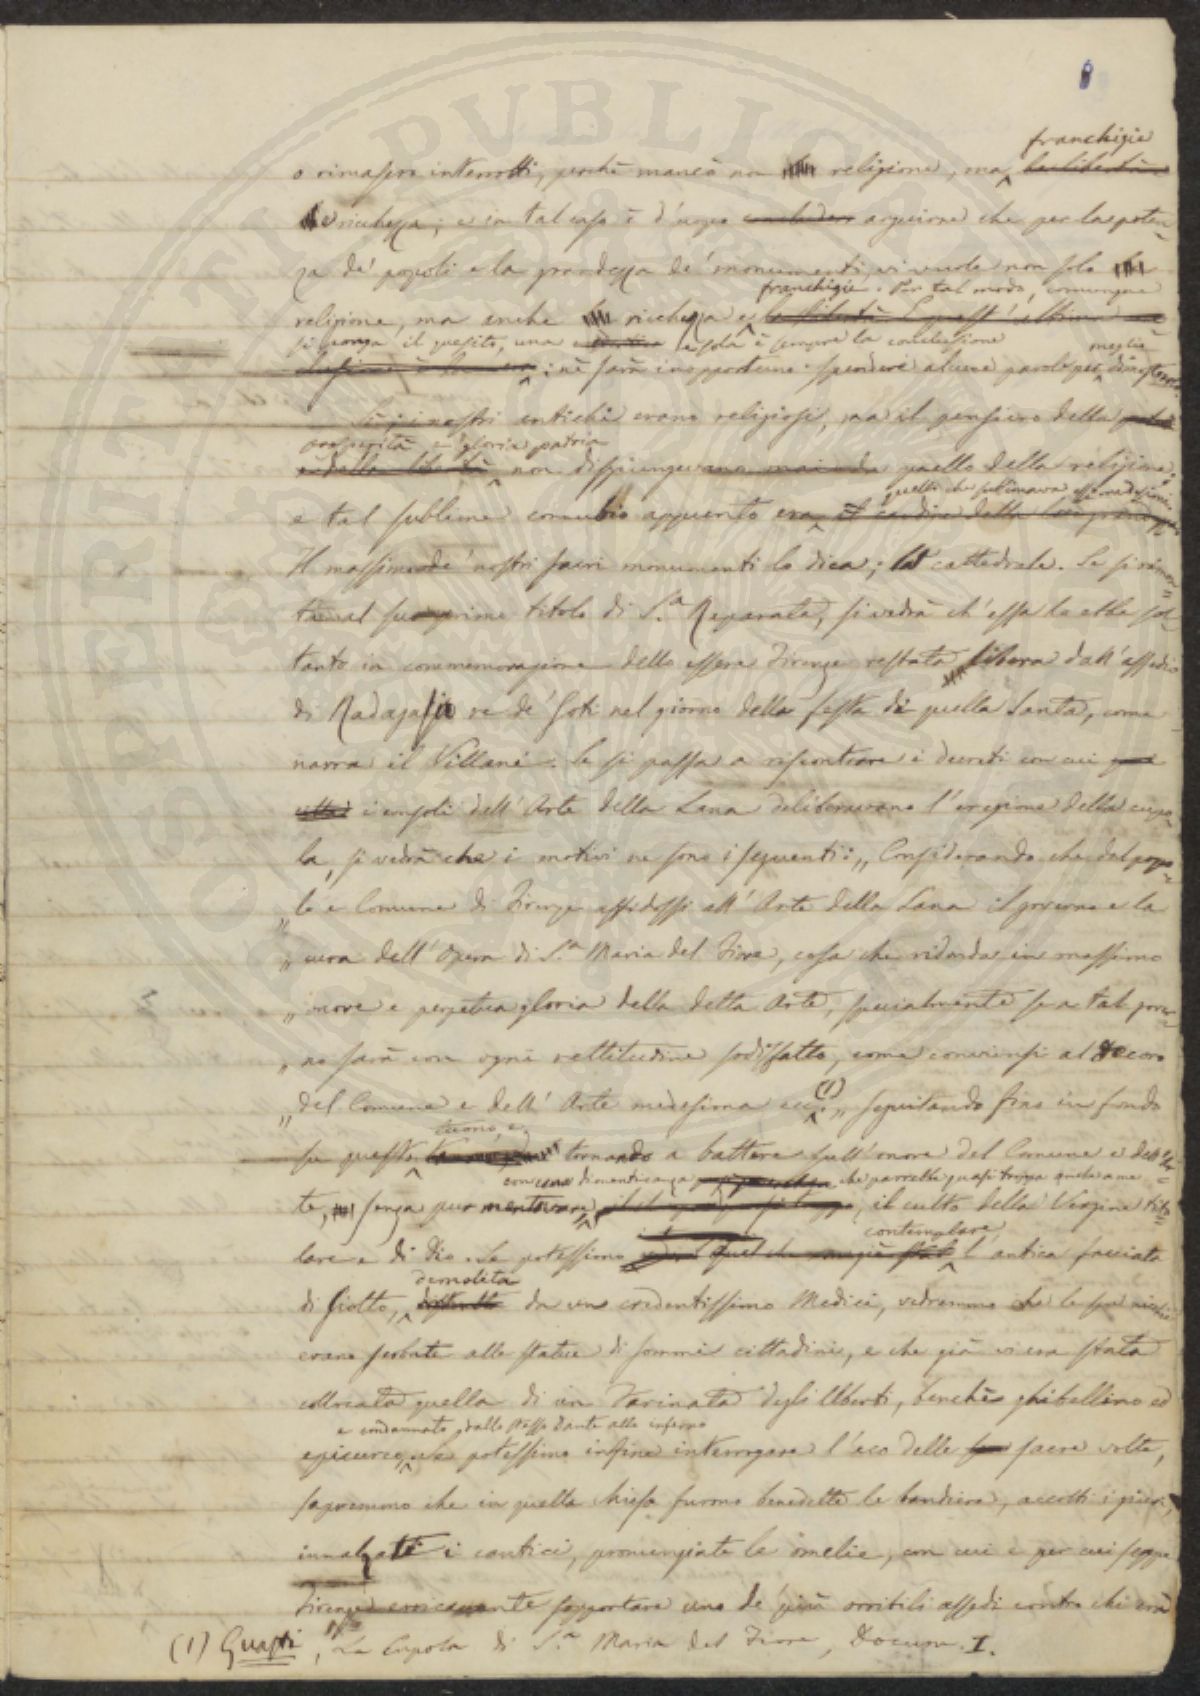 8
franchigie
o rimasero interrotti, perchè mancò non religione, ma le libertà
e ricchezza; e in tal caso è d'uopo concludere arguirne che per la poten-
za de' popoli e la grandezza de' monumenti, vi vuole non solo
franchigie. Per tal modo, comunque
religione, ma anche ricchezza e
si ponga il quesito, una e sola è sempre la conclusione
meglio
; nè sarà inopportuno spendere alcune parole per dimostrarlo.
Sì, i nostri antichi erano religiosi, ma il pensiero della
prosperità e gloria patria
e della libertà non disgiungevano mai da quello della religione;
quello che sublimava
e tal sublime connubio appunto era il cardine della loro grandezza
Il massimo de' nostri sacri monumenti lo dica; la cattedrale. Se si rimon-
ta al suo primo titolo di S.a Reparata, si vedrà ch'essa lo ebbe sol-
tanto in commemorazione dello essere Firenze restata libera dall'assedio
di Radagasio re de' Goti nel giorno della festa di quella Santa, come
narra il Villani. Se si passa a riscontrare i decreti con cui
i consoli dell'Arte della Lana deliberavano l'erezione della cupo-
la, si vedrà che i motivi ne sono i seguenti: „ Considerando che dal popo-
„ lo e Comune di Firenze affidossi all'Arte della Lana il governo e la
„ cura dell'Opera di S.a Maria del Fiore, cosa che ridonda in massimo
„ onore e perpetua gloria della detta Arte, specialmente se a tal gover-
„ no sarà con ogni rettitudine sodisfatto, come conviensi al decoro
„ del Comune e dell'Arte medesima ecc. (1) „ seguitando fino in fondo
tuono, e
su questo tornando a battere sull'onore del Comune e dell'Ar-
con una dimenticanza che parrebbe quasi troppa anche a me
te, senza pur mentovare, il culto della Vergine tito-
contemplare
lare e di Dio. Se potessimo l'antica facciata
demolita
di Giotto, distrutta da un credentissimo Medici, vedremmo che le sue nicchie
erano serbate alle statue di sommi cittadini, e che già vi era stata
collocata quella di un Farinata degli Uberti, benchè ghibellino ed
e condannato dallo stesso Dante allo inferno
epicureo, e se potessimo infine interrogare l'eco delle sacre volte,
sapremmo che in quella chiesa furono benedette le bandiere, accolti i
innalzati i cantici, pronunziate le omelie, con cui e per cui seppe
Firenze eroicamente sopportare uno de' più orribili assedi contro chi era
(1) Guasti, La Cupola di S.a Maria del Fiore, Docum. I.